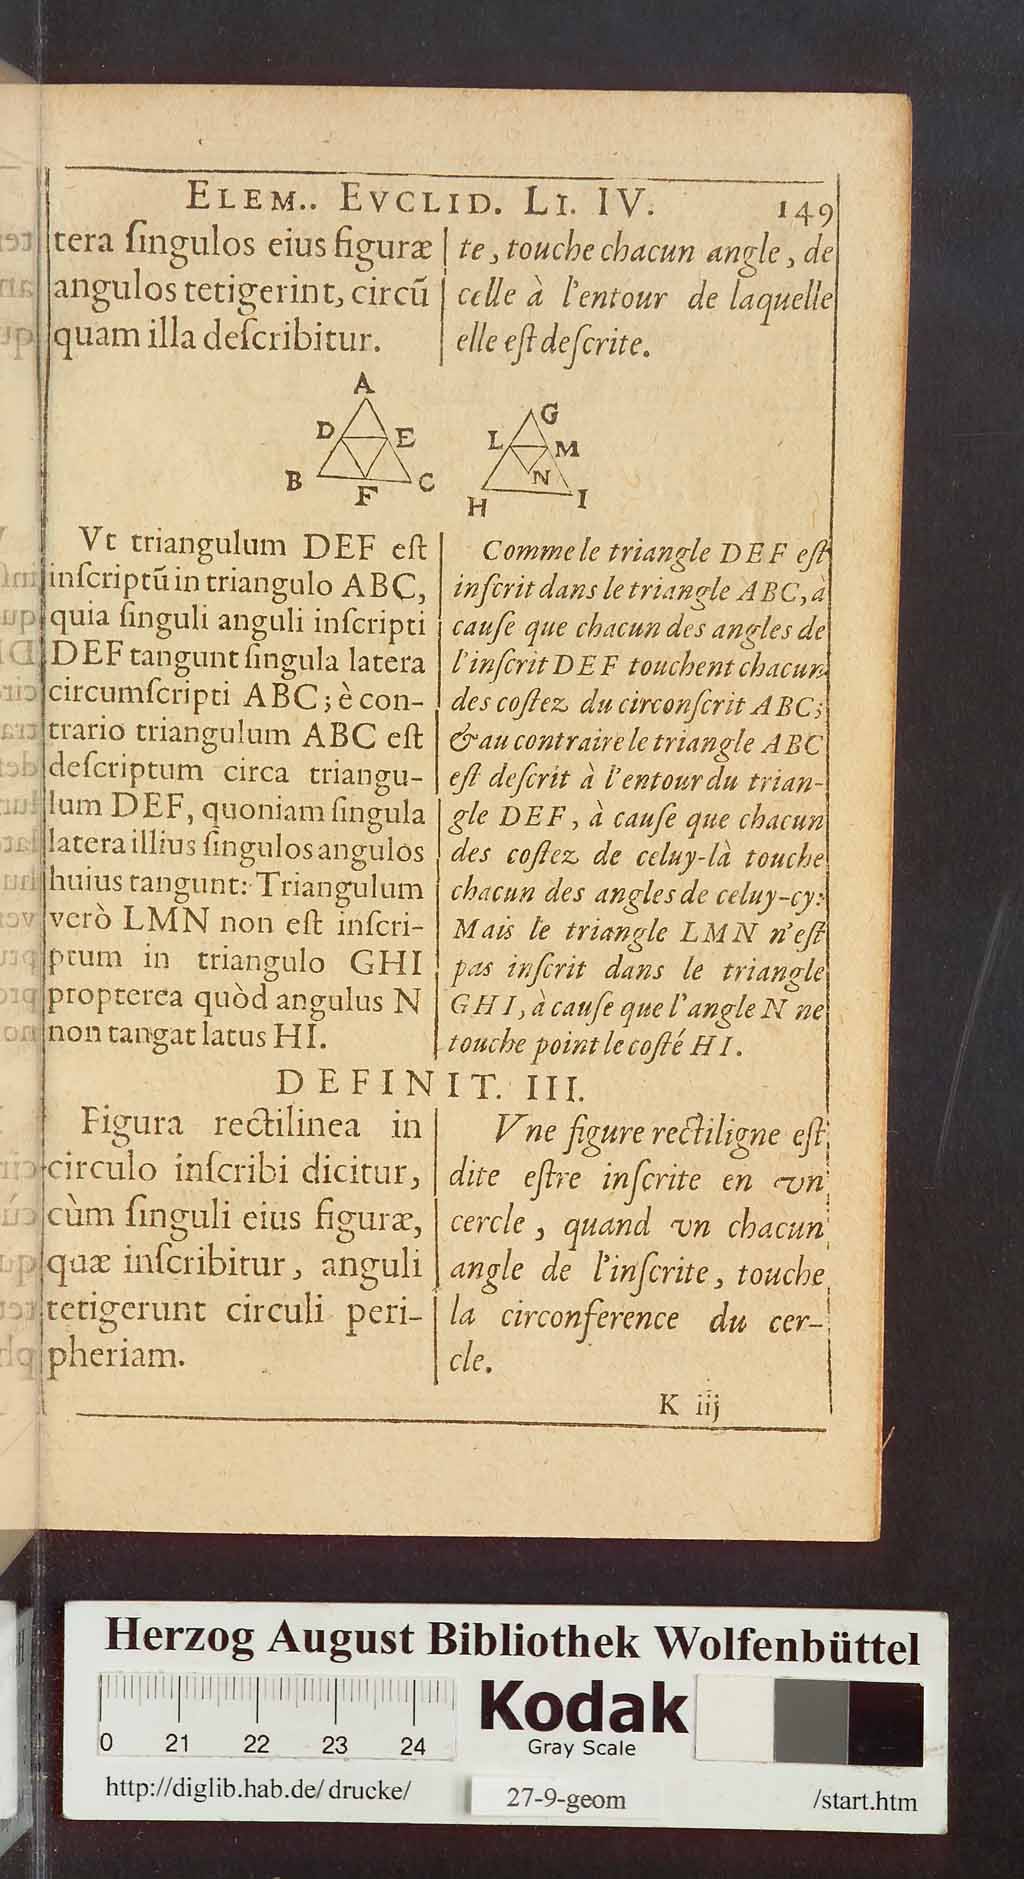 ELEM.. EVCLID. LI. IV. 149
tera ſingulos eius figuræ
angulos tetigerint, circū
quam illa deſcribitur.
te, touche chacun angle, de
celle à l'entour de laquelle
elle eſt deſcrite.
A
D E
B F C
G
L M
N
H I
Vt triangulum DEF eſt
inſcriptū in triangulo ABC,
quia ſinguli anguli inſcripti
DEF tangunt ſingula latera
circumſcripti ABC; è con-
trario triangulum ABC eſt
deſcriptum circa triangu-
lum DEF, quoniam ſingula
latera illius ſingulos angulos
huius tangunt: Triangulum
verò LMN non eſt inſcri-
ptum in triangulo GHI
propterea quòd angulus N
non tangat latus HI.
Comme le triangle DEF eſt
inſcrit dans le triangle ABC, à
cauſe que chacun des angles de
l'inſcrit DEF touchent chacun
des coſtez du circonſcrit ABC;
& au contraire le triangle ABC
eſt deſcrit à l'entour du trian-
gle DEF, à cauſe que chacun
des coſtez de celuy-là touche
chacun des angles de celuy-cy:
Mais le triangle LMN n'eſt
pas inſcrit dans le triangle
GHI, à cauſe que l'angle N ne
touche point le coſté HI.
DEFINIT. III.
Figura rectilinea in
circulo inſcribi dicitur,
cùm ſinguli eius figuræ,
quæ inſcribitur, anguli
tetigerunt circuli peri-
pheriam.
Vne figure rectiligne eſt
dite eſtre inſcrite en vn
cercle, quand vn chacun
angle de l'inſcrite, touche
la circonference du cer-
cle.
K iij
Herzog August Bibliothek Wolfenbüttel
0 21 22 23 24
Kodak
Gray Scale
http://diglib.hab.de/drucke/ 27-9-geom /start.htm